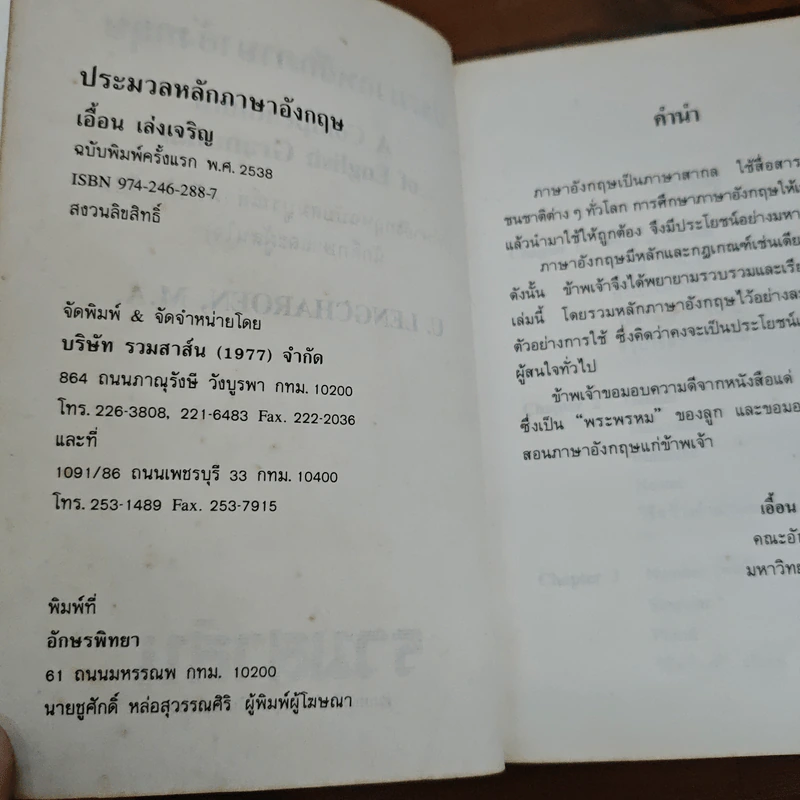 ประมวลหลักภาษาอังกฤษ
เอื้อน เล่งเจริญ
ฉบับพิมพ์ครั้งแรก พ.ศ. 2538
ISBN 974-246-288-7
สงวนลิขสิทธิ์
จัดพิมพ์ & จัดจำหน่ายโดย
บริษัท รวมสาส์น (1977) จำกัด
864 ถนนภาณุรังษี วังบูรพา กทม. 10200
โทร. 226-3808, 221-6483 Fax. 222-2036
และที่
1091/86 ถนนเพชรบุรี 33 กทม. 10400
โทร. 253-1489 Fax. 253-7915
พิมพ์ที่
อักษรพิทยา
61 ถนนมหรรณพ กทม. 10200
นายชูศักดิ์ หล่อสุวรรณศิริ ผู้พิมพ์ผู้โฆษณา
คำนำ
ภาษาอังกฤษเป็นภาษาสากล ใช้สื่อสาร
ชนชาติต่าง ๆ ทั่วโลก การศึกษาภาษาอังกฤษให้
แล้วนำมาใช้ให้ถูกต้อง จึงมีประโยชน์อย่างมหา
ภาษาอังกฤษมีหลักและกฎเกณฑ์เช่นเดีย
ดังนั้น ข้าพเจ้าจึงได้พยายามรวบรวมและเรีย
เล่มนี้ โดยรวมหลักภาษาอังกฤษไว้อย่างละ
ตัวอย่างการใช้ ซึ่งคิดว่าคงจะเป็นประโยชน์
ผู้สนใจทั่วไป
ข้าพเจ้าขอมอบความดีจากหนังสือแด่
ซึ่งเป็น “พระพรหม” ของลูก และขอมอ
สอนภาษาอังกฤษแก่ข้าพเจ้า
เอื้อน
คณะอั
มหาวิทย